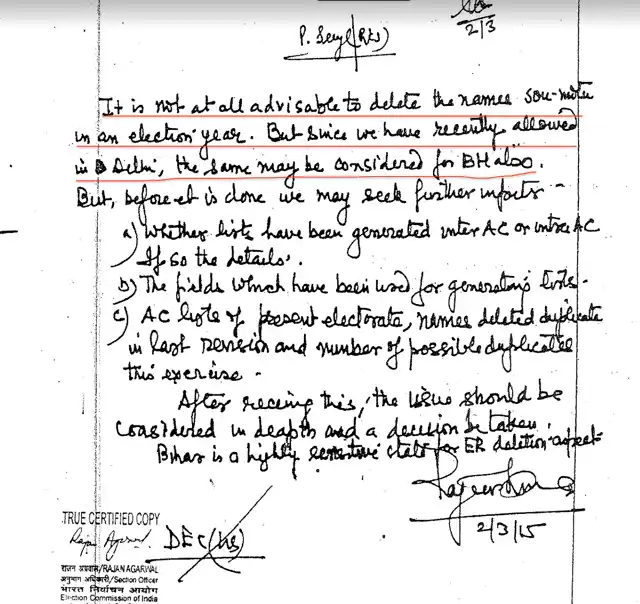 2/3
P. Secy (RKS)
It is not at all advisable to delete the names sou-motu
in an election year. But since we have recently allowed
in Delhi, the same may be considered for BH also.
But, before it is done we may seek further inputs -
a) Whether lists have been generated inter AC or intra AC
If so the details.
b) The fields which have been used for generating lists.
c) AC lists of present electorate, names deleted duplicate
in last revision and number of possible duplicates
this exercise.
After receing this, the issue should be
considered in deapth and a decision be taken.
Bihar is a highly sensitive state for ER deletion aspect
2/3/15
TRUE CERTIFIED COPY
Rajan Agarwal
DEC (US)
राजन अग्रवाल/RAJAN AGARWAL
अनुभाग अधिकारी/Section Officer
भारत निर्वाचन आयोग
Election Commission of India